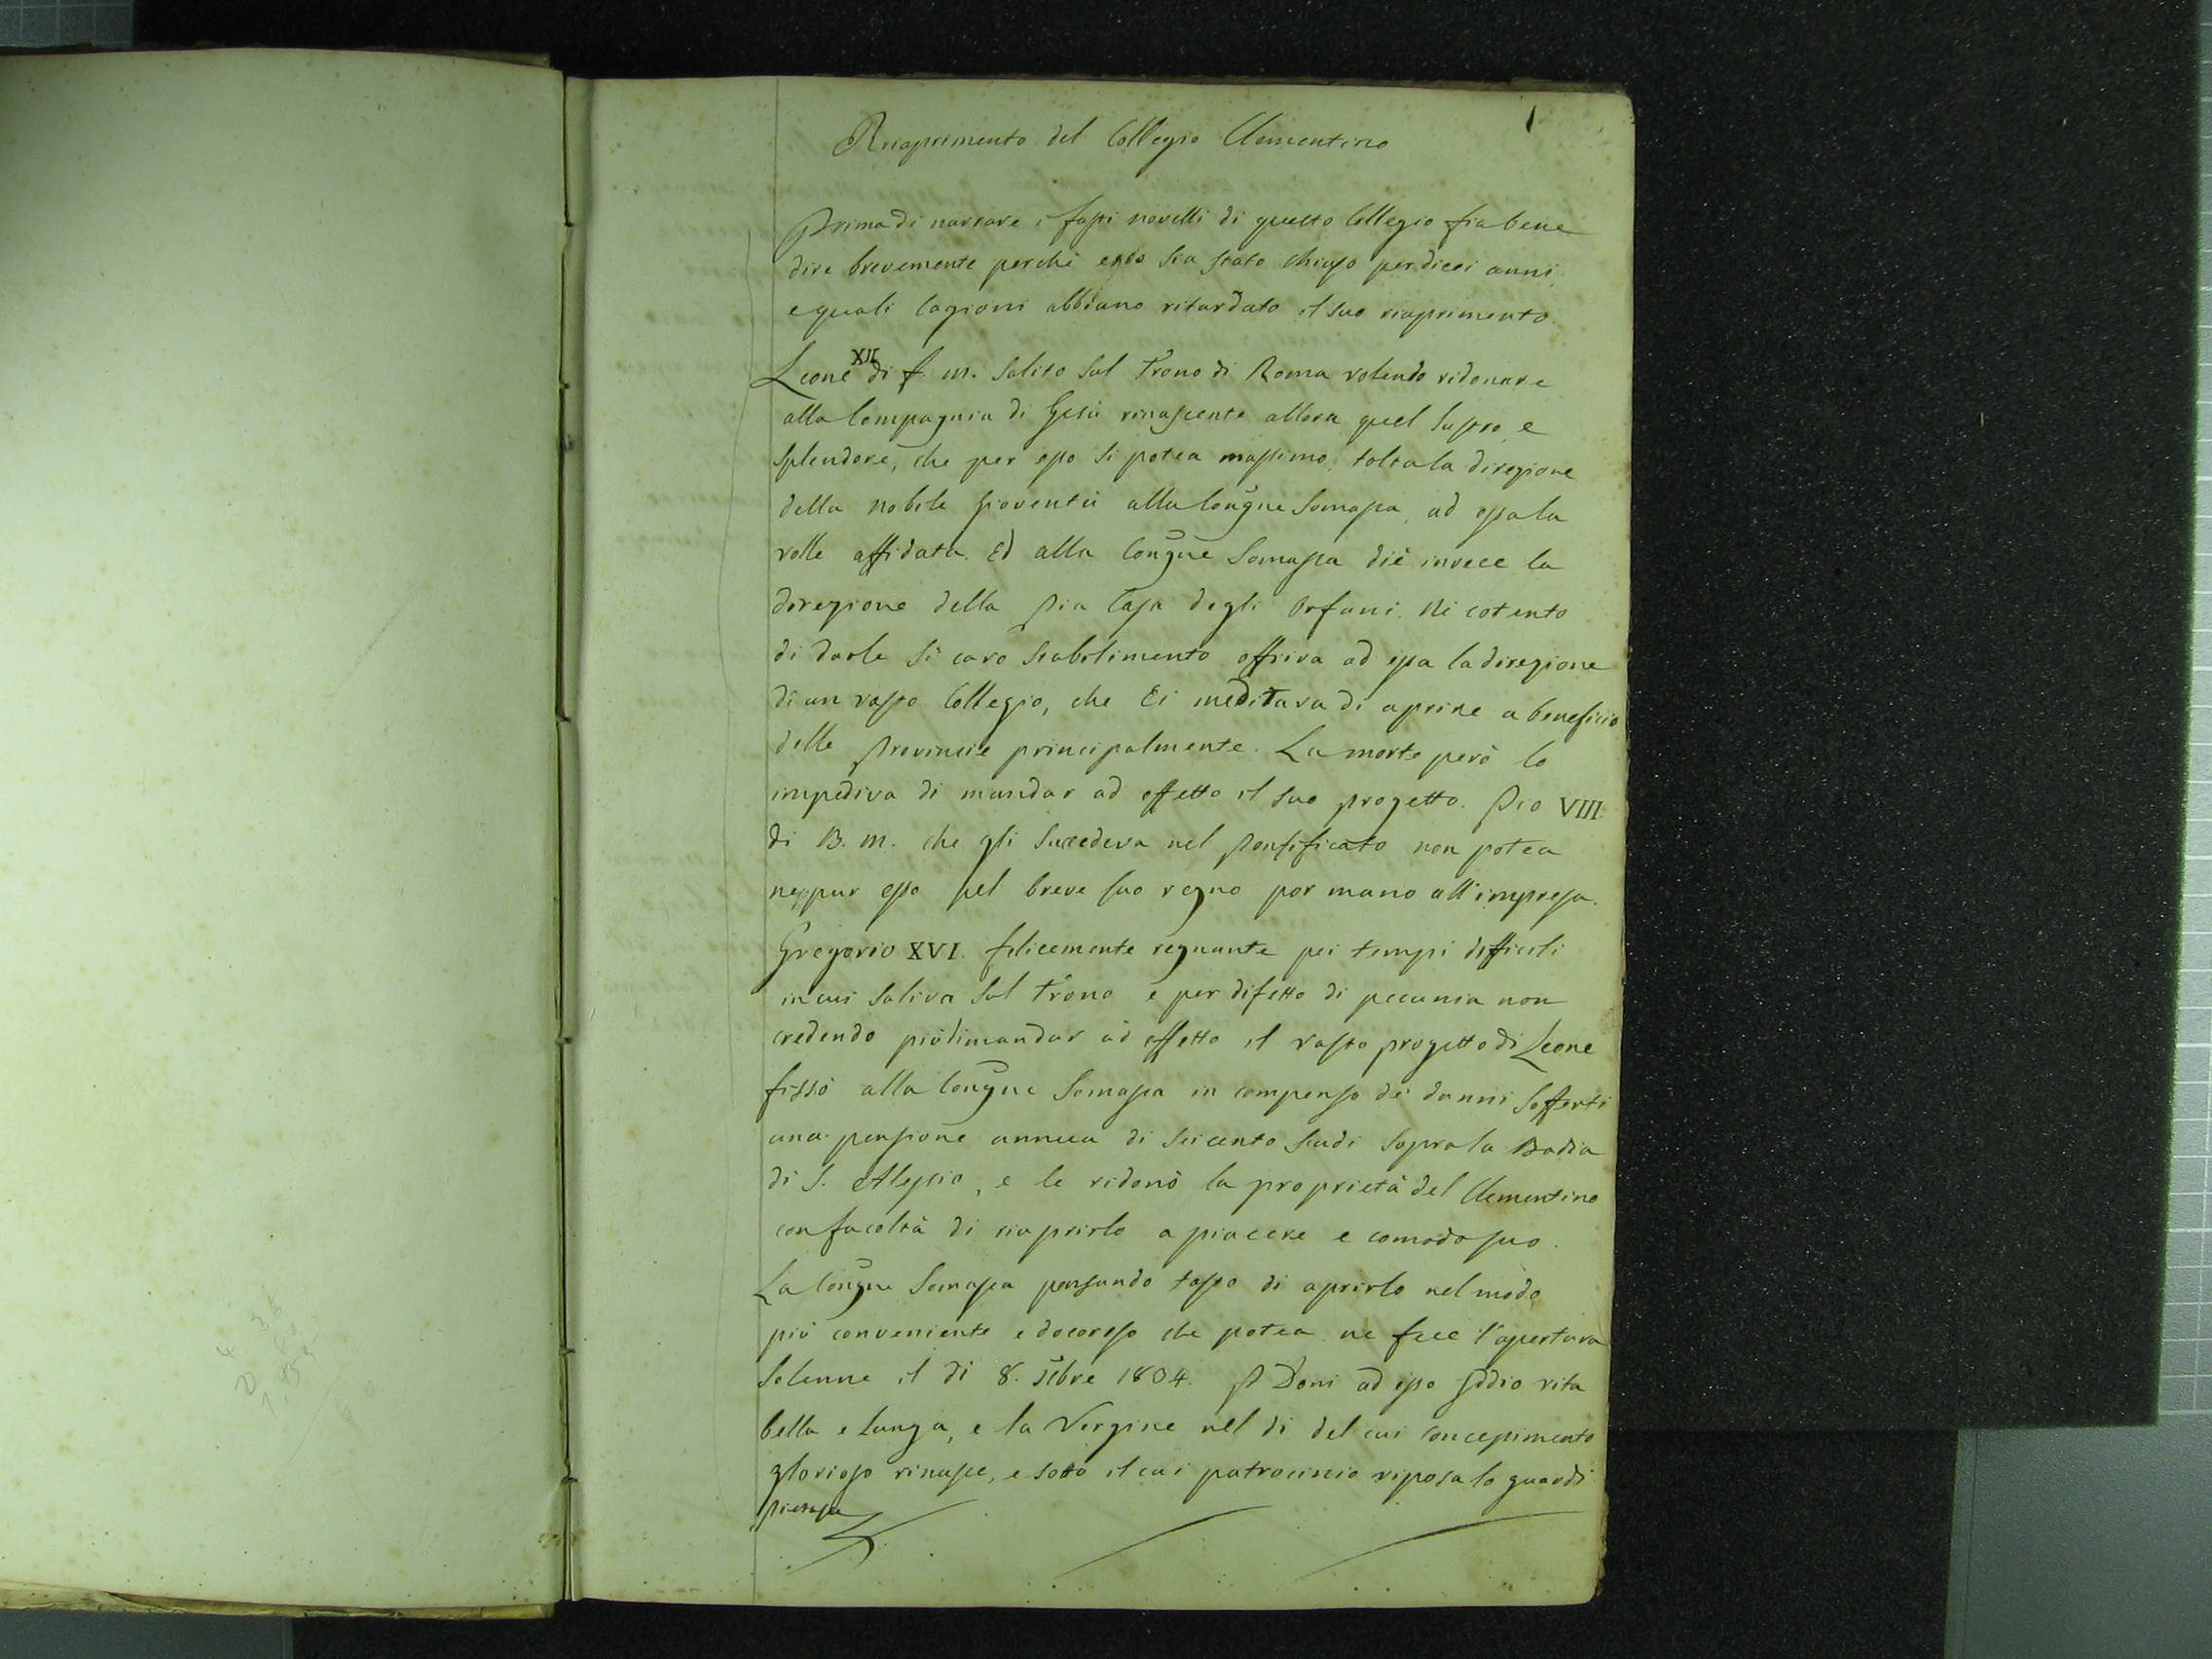 1
Riaprimento del Collegio Clementino
Prima di narrare i fasti novelli di questo Collegio fia bene
dire brevemente perchè esso sia stato chiuso per dieci anni,
e quali cagioni abbiano ritardato il suo riaprimento.
Leone XII di f. m. salito sul trono di Roma volendo ridonare
alla Compagnia di Gesù rinascente allora quel lustro, e
splendore, che per esso si potea massimo, tolta la direzione
della nobile gioventù alla Congne Somasca, ad essa la
volle affidata. Ed alla Congne Somasca diè invece la
direzione della Pia Casa degli Orfani. Nè cotento
di darle sì caro stabilimento offriva ad essa la direzione
di un vasto Collegio, che Ei meditava di aprire a beneficio
delle Provincie principalmente. La morte però lo
impediva di mandar ad effetto il suo progetto. Pio VIII.
di B. m. che gli succedeva nel Pontificato non potea
neppur esso nel breve suo regno por mano all'impresa.
Gregorio XVI. felicemente regnante pei tempi difficili
in cui saliva sul trono e per difetto di pecunia non
credendo più di mandar ad effetto il vasto progetto di Leone
fissò alla Congne Somasca in compenso dei danni sofferti
una pensione annua di seicento scudi sopra la Badia
di S. Alessio, e le ridonò la proprietà del Clementino
con facoltà di riaprirlo a piacere e comodo suo.
La Congne Somasca pensando tosto di aprirlo nel modo
più conveniente e decoroso che potea ne fece l'apertura
solenne il dì 8. Xbre 1834. Doni ad esso Iddio vita
bella e lunga, e la Vergine nel dì del cui concepimento
glorioso rinasce, e sotto il cui patrocinio riposa lo guardi
pietosa